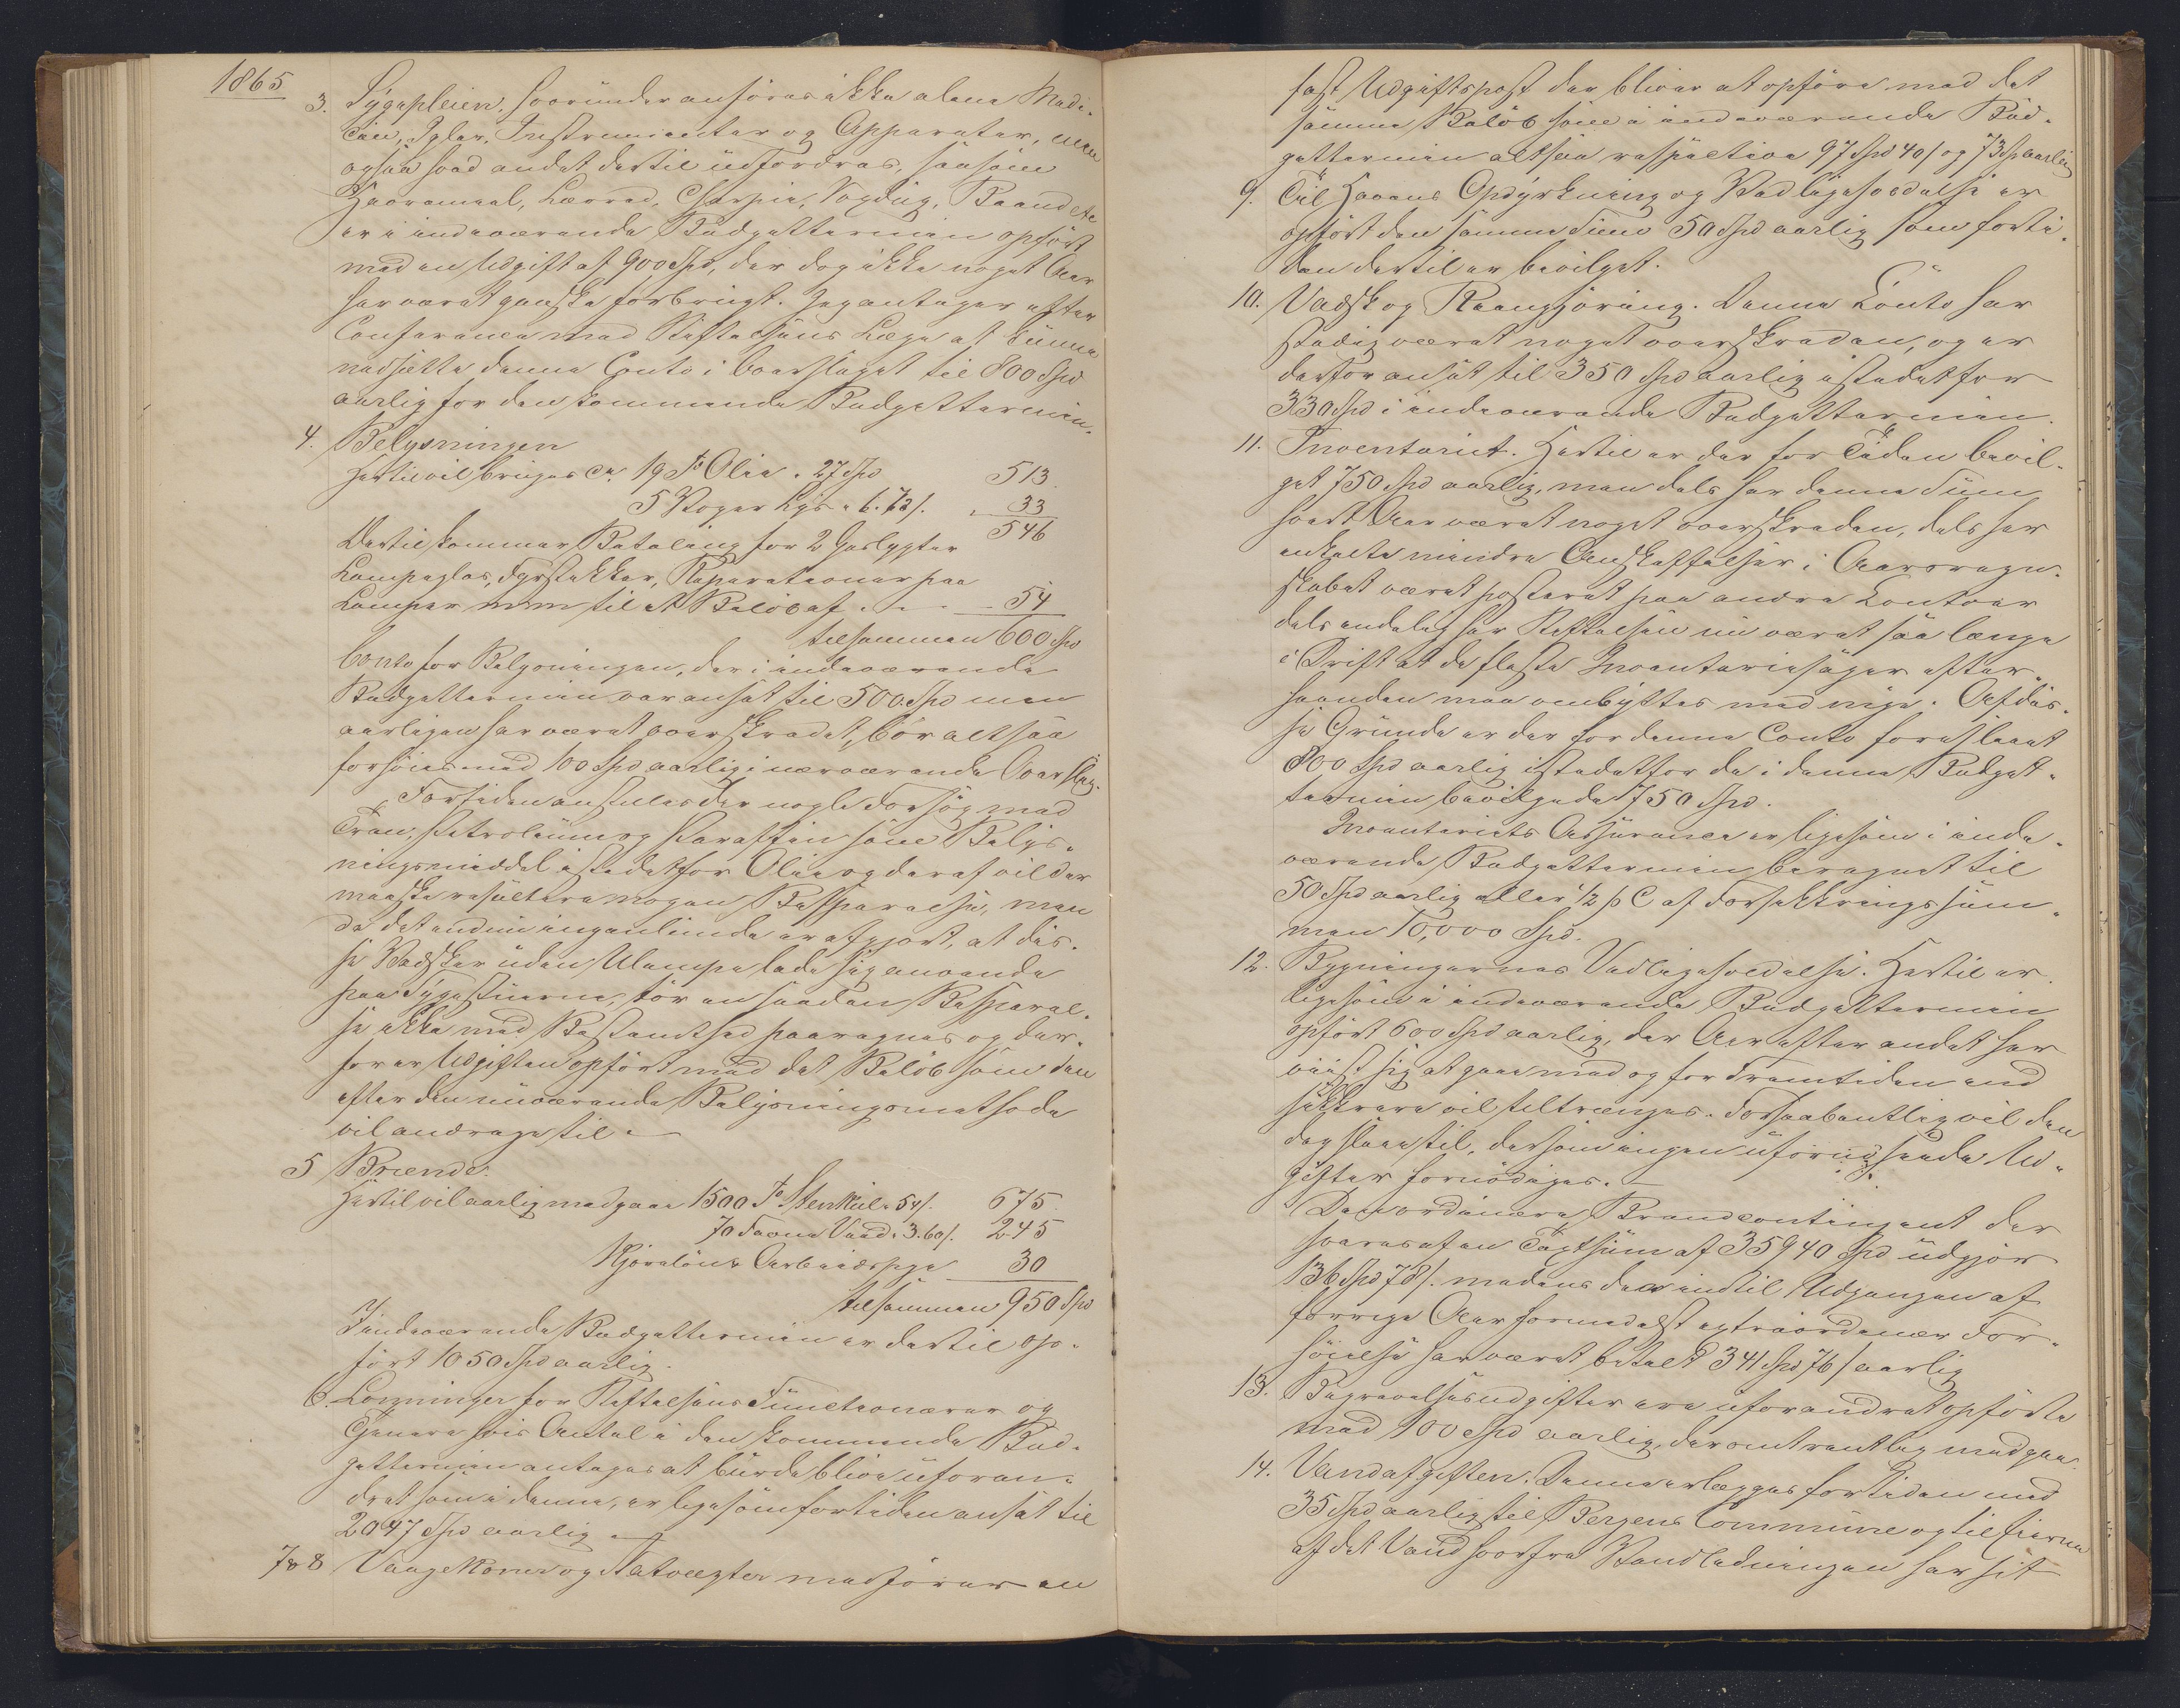 1865
3. Sygepleien, hvorunder anføres ikke alene Medi-
cin, Igler, Instrumenter og Apparater, men
ogsaa hvad andet dertil udfordres, saasom
Havremeel, Lærred, Charpie, Voxdug, Baand etc
er i indeværende Budgettermin opført
med en Udgift af 900 Spd, der dog ikke noget Aar
har været ganske forbrugt. Jeg antager efter
Conference med Stiftelsens Læge at kunne
nedsætte denne Conto i Overslaget til 800 Spd
aarlig for den kommende Budgettermin.
4. Belysningen
Hertil vil bruges ca. 19 Olie a 27 Spd 513
5 Voger Lys a 6.72/. 33
546
Dertil kommer Betaling for 2 Gaslygter
Lampeglas, Fyrstikker, Reparationer paa
Lamper m m til et Beløb af 54
tilsammen 600 Spd
Conto for Belysningen, der i indeværende
Budgettermin var ansat til 500 Spd men
aarligen har været overskredet, bør altsaa
forhøies med 100 Spd aarlig i nærværende Overslag.
For tiden anstilles der nogle Forsøg med
Tran, Petroleum og Paraffin som Belys-
ningsmiddel istedetfor Olie og deraf vil der
maaske resultere nogen Besparelse, men
da det endnu ingenlunde er afgjort, at dis-
se Vædsker uden Ulempe lade sig anvende
paa Sygestuerne, tør en saadan Besparel-
se ikke med Bestemthed paaregnes og der-
for er Udgiften opført med det Beløb som den
efter den nuværende Belysningsmethode
vil andrage til.
5 Brænde.
Hertil vil aarlig medgaa 1500 Tr Steenkul a 54/. 675
70 Favne Veed a 3.60/. 245
Kjøreløn & Arbeidshjælp 30
tilsammen 950 Spd
I indeværende Budgettermin er dertil op-
ført 1050 Spd aarlig.
6. Lønninger for Stiftelsens Functionærer og
Tjenere hvis Antal i den kommende Bud-
gettermin antages at burde blive uforan-
dret som i denne, er ligesom for tiden ansat til
2047 Spd aarlig
7 & 8 Vaagekoner og Natvægter medfører en
fast Udgiftspost der bliver at opføre med det
samme Beløb som i indeværende Bud-
gettermin altsaa respective 97 Spd 40/ og 73 Sp aarlig
9. Til Havens Opdyrkning og Vedligeholdelse er
opført den samme Sum 50 Spd aarlig som forti-
den dertil er bevilget.
10. Vadsk og Reengjøring. Denne Conto har
stadig været noget overskreden, og er
derfor ansat til 350 Spd aarlig istedetfor
330 Spd i indeværende Budgettermin.
11. Inventariet. Hertil er der for Tiden bevil-
get 750 Spd aarlig, men dels har denne Sum
hvert Aar været noget overskreden, dels har
enkelte mindre Anskaffelser i Aarsregn-
skabet været posteret paa andre Contoer
dels endelig har Stiftelsen nu været saa længe
i Drift at de fleste Inventariesager efter-
haanden maa ombyttes med nye. Af dis-
se Grunde er der for denne Conto foreslaaet
800 Spd aarlig istedetfor de i denne Budget-
termin bevilgede 750 Spd.
Inventariets Assurance er ligesom i inde-
værende Budgettermin beregnet til
50 Spd aarlig eller ½ p C af Forsikkringssum-
men 10,000 Spd.
12. Bygningernes Vedligeholdelse. Hertil er
ligesom i indeværende Budgettermin
opført 600 Spd aarlig, der Aar efter andet har
viist sig at gaae med og for Fremtiden end
sikkrere vil tiltrænges. Forhaabentlig vil den
dog slaae til, dersom ingen uforudseede Ud-
gifter fornødiges.
Den ordinære Brandcontingent der
svares af en Taxtsum af 35940 Spd udgjør
136 Spd 78/. medens der indtil Udgangen af
forrige Aar formedelst extraordinær For-
høielse har været betalt 341 Spd 76/ aarlig
13. Begravelsesudgifter ere uforandret opførte
med 100 Spd aarlig, der omtrentlig medgaa.
14. Vandafgiften. Denne erlægges for Tiden med
35 Spd aarlig til Bergens Commune og til Eierne
af det Vand hvorfra Vandledningen har sit